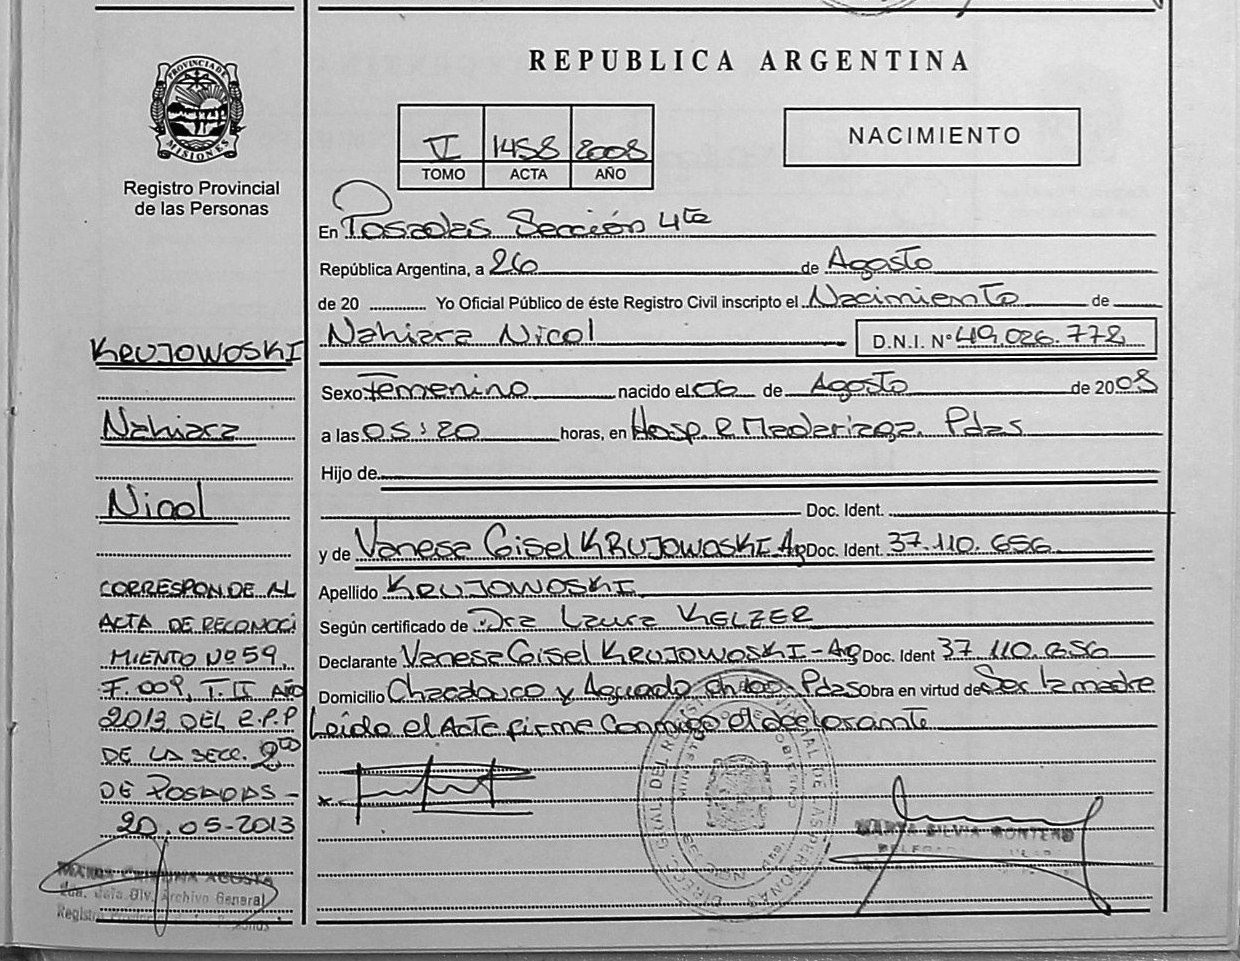 REPUBLICA ARGENTINA
PROVINCIA DE MISIONES
Registro Provincial
de las Personas
VI 1458 2008
TOMO ACTA AÑO
NACIMIENTO
En Posadas Sección 4ta
República Argentina, a 26 de Agosto
de 20 Yo Oficial Público de éste Registro Civil inscripto el Nacimiento de
Nahiara Nicol D.N.I. Nº 49.026.778
Sexo Femenino nacido el 06 de Agosto de 2008
a las 05:20 horas, en Hosp. R Madariaga. Pdas
Hijo de
Doc. Ident.
y de Vanesa Gisel KRUJOWOSKI Arg Doc. Ident. 37.110.656
Apellido KRUJOWOSKI
Según certificado de Dra Laura KELZER
Declarante Vanesa Gisel KRUJOWOSKI-Arg Doc. Ident 37.110.656
Domicilio Chacabuco y Aguado Pdas Obra en virtud de Ser la madre
Leído el Acta firma conmigo el declarante
KRUJOWOSKI
Nahiara
Nicol
CORRESPONDE AL
ACTA DE RECONOCI
MIENTO Nº 59,
F. 009, T. II AÑO
2013 DEL R.P.P
DE LA SECC. 2da
DE POSADAS -
20.05-2013
MARIA CRISTINA ACOSTA
Jefa Div. Archivo General
MARTA SILVIA MONTERO